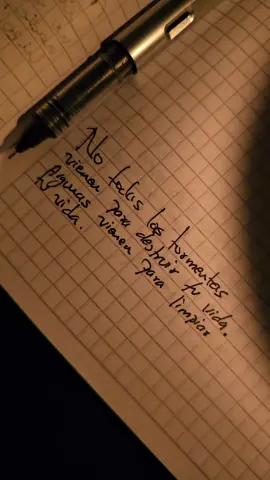 No todas las tormentas
vienen para destruir tu vida.
Algunas vienen para limpiar
tu vida.